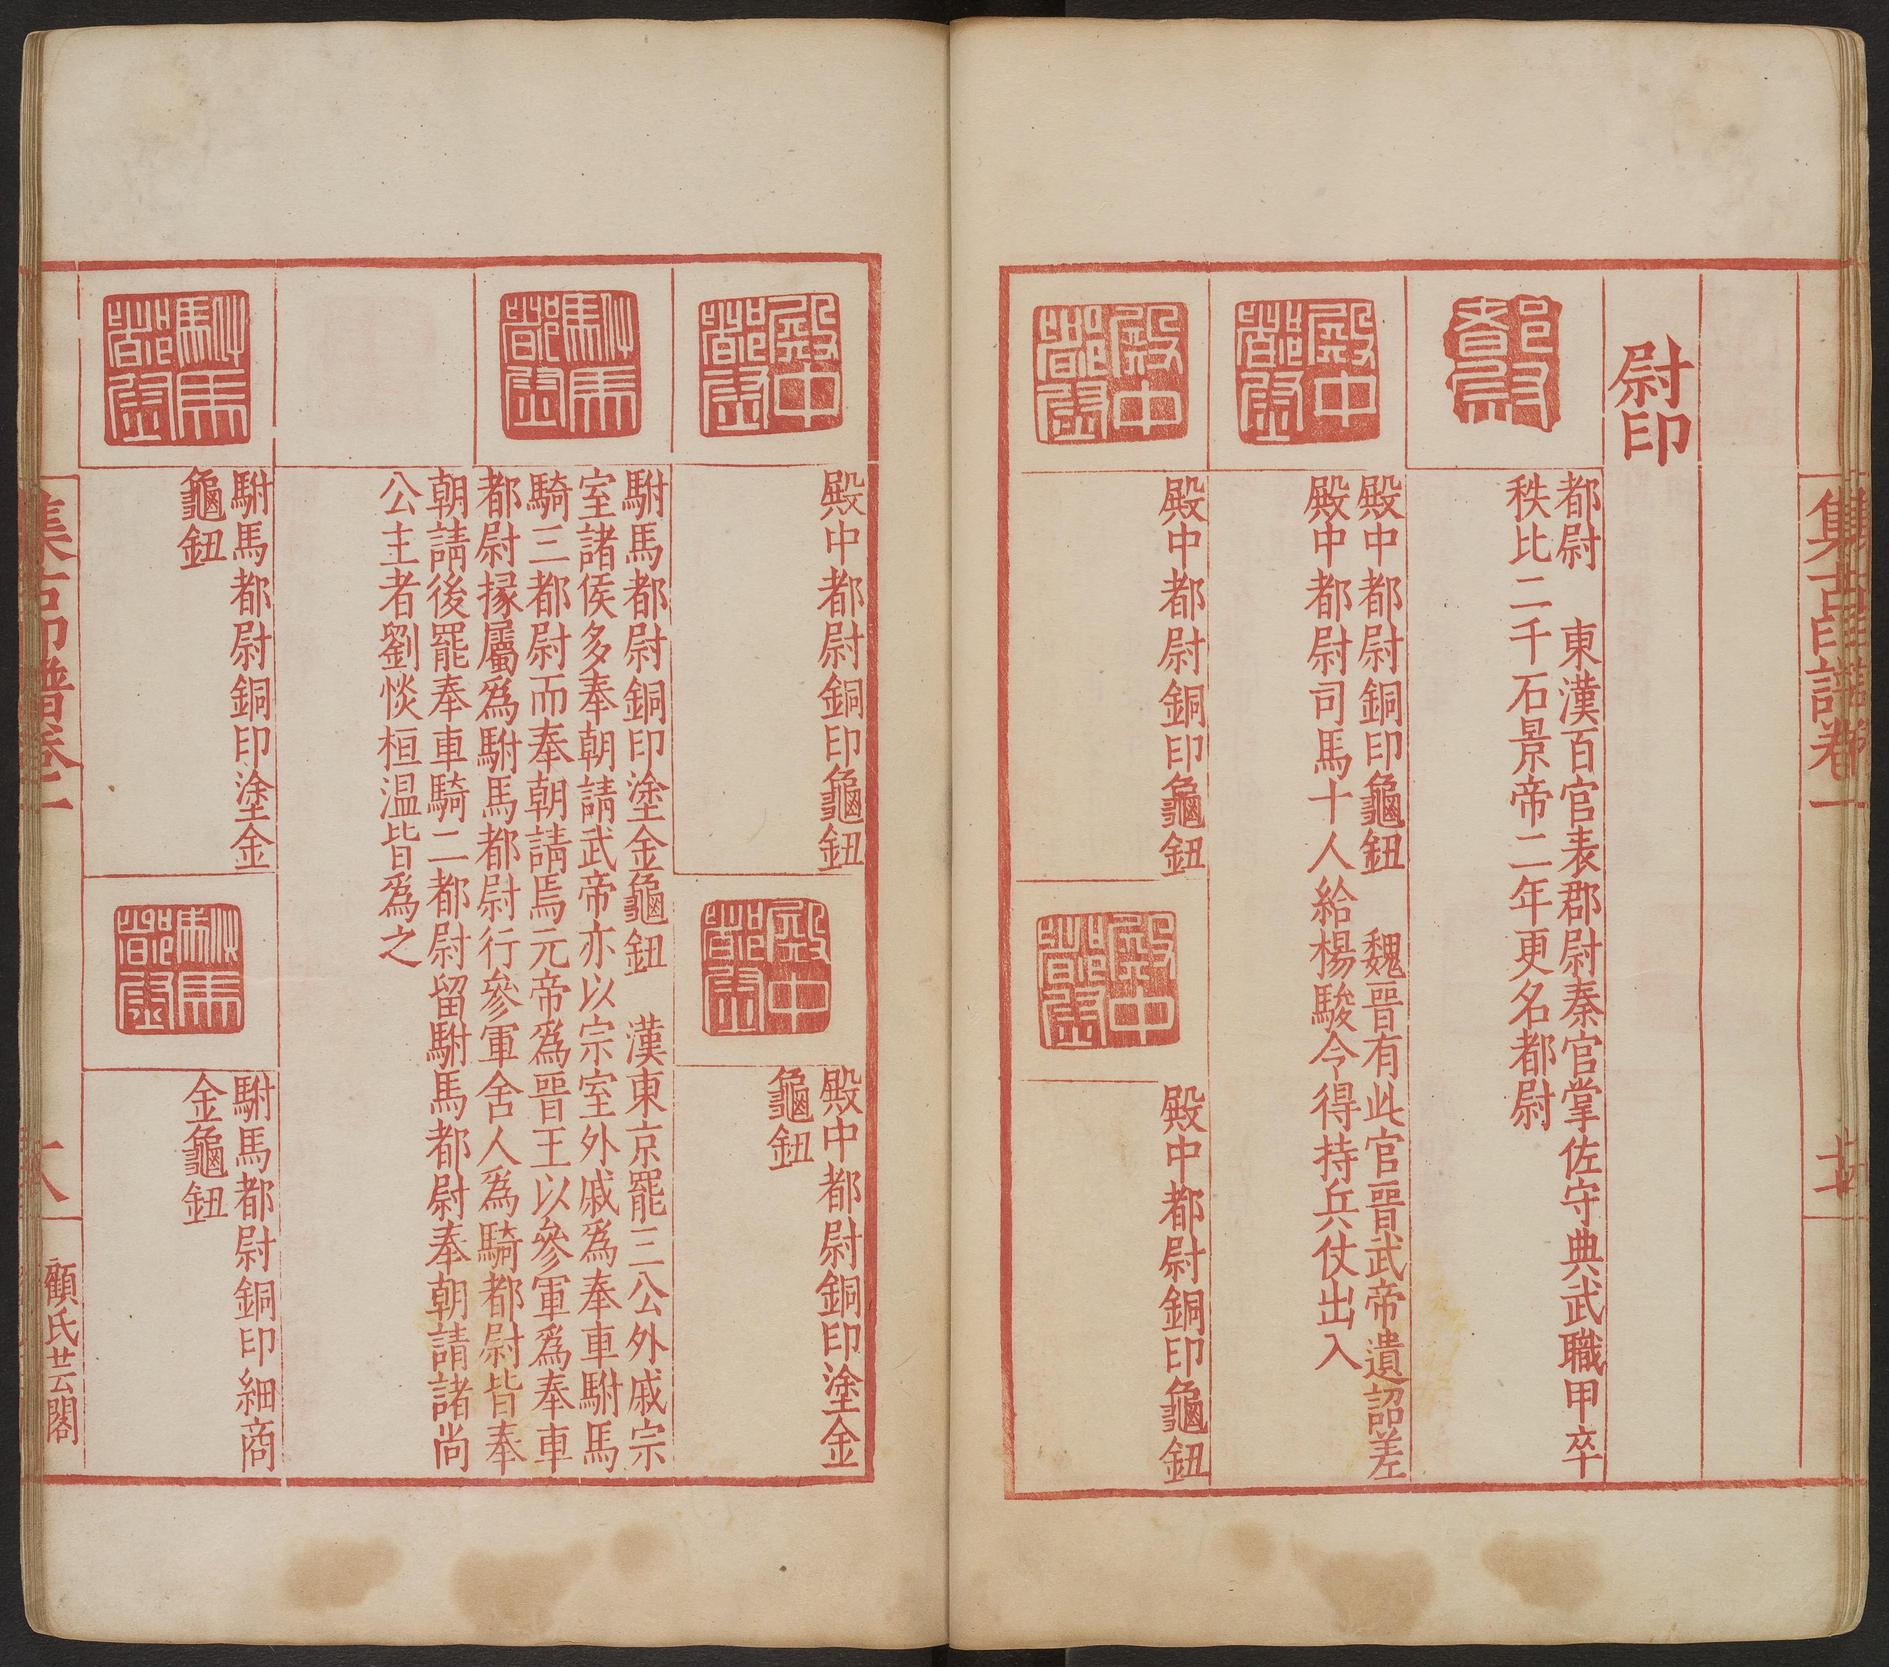 集古印譜卷一
尉印
都尉
都尉　東漢百官表郡尉秦官掌佐守典武職甲卒
秩比二千石景帝二年更名都尉
殿中都尉
殿中都尉銅印龜鈕　魏晉有此官晉武帝遺詔差
殿中都尉司馬十人給楊駿令得持兵仗出入
殿中都尉
殿中都尉銅印龜鈕
殿中都尉
殿中都尉銅印龜鈕
殿中都尉
殿中都尉銅印龜鈕
殿中都尉
殿中都尉銅印塗金
龜鈕
駙馬都尉
駙馬都尉銅印塗金龜鈕　漢東京罷三公外戚宗
室諸侯多奉朝請武帝亦以宗室外戚爲奉車駙馬
騎三都尉而奉朝請焉元帝爲晉王以參軍爲奉車
都尉掾屬爲駙馬都尉行參軍舍人爲騎都尉皆奉
朝請後罷奉車騎二都尉留駙馬都尉奉朝請諸尚
公主者劉惔桓温皆爲之
駙馬都尉
駙馬都尉銅印塗金
龜鈕
駙馬都尉
駙馬都尉銅印細商
金龜鈕
集古印譜卷一
顧氏芸閣